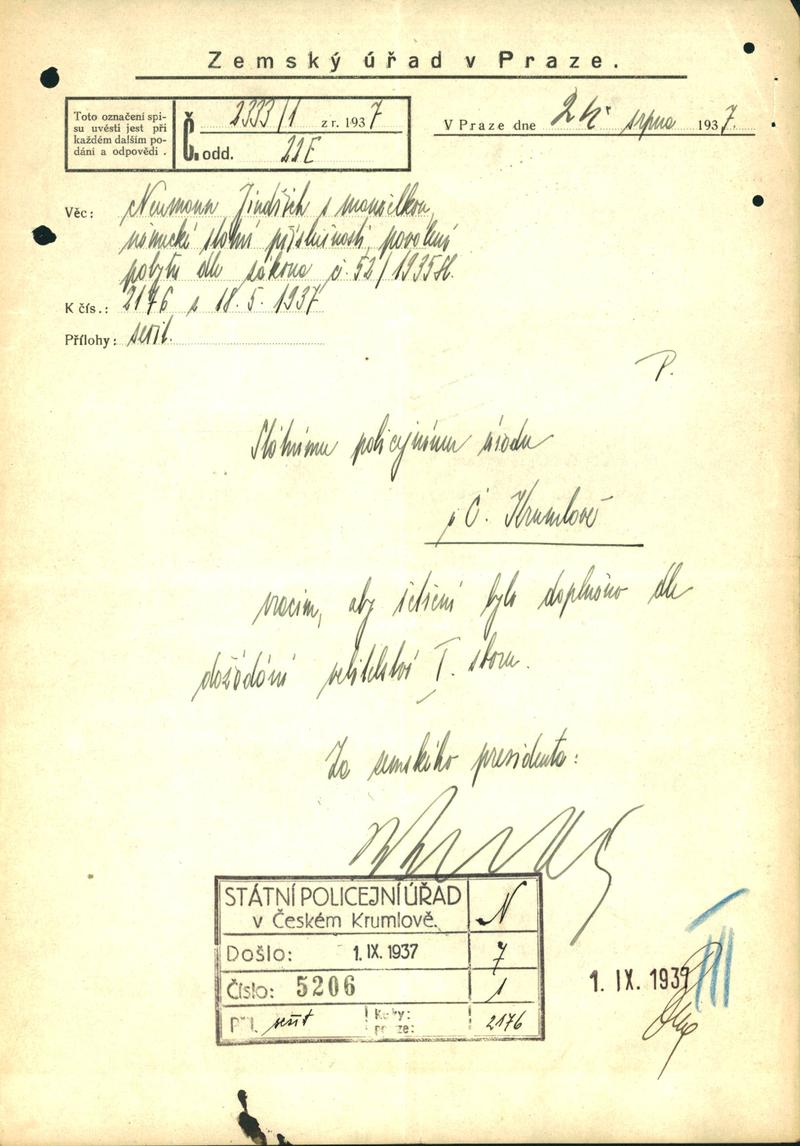 Zemský úřad v Praze.
Toto označení spi-
su uvésti jest při
každém dalším po-
dání a odpovědi.
Č. 2333/1 z r. 1937
odd. 22E
V Praze dne srpna 1937.
Věc: Neumann Jindřich s manželkou,
německé státní příslušnosti, povolení
pobytu dle zákona č. 52/1935 Sb.
K čís.: 2176 z 18. 5. 1937
Přílohy: sešit.
P.
Státnímu policejnímu úřadu
v Č. Krumlově
vracím, aby šetření bylo doplněno dle
dožádání velitelství I. sboru.
Za zemského presidenta:
STÁTNÍ POLICEJNÍ ÚŘAD
v Českém Krumlově.
N
Došlo: 1. IX. 1937
7
Číslo: 5206
1
Příl. sešit
2176
1. IX. 1937
III